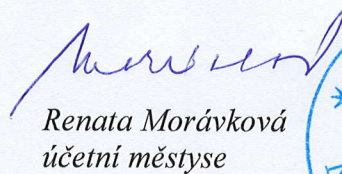 Renata Morávková
účetní městyse